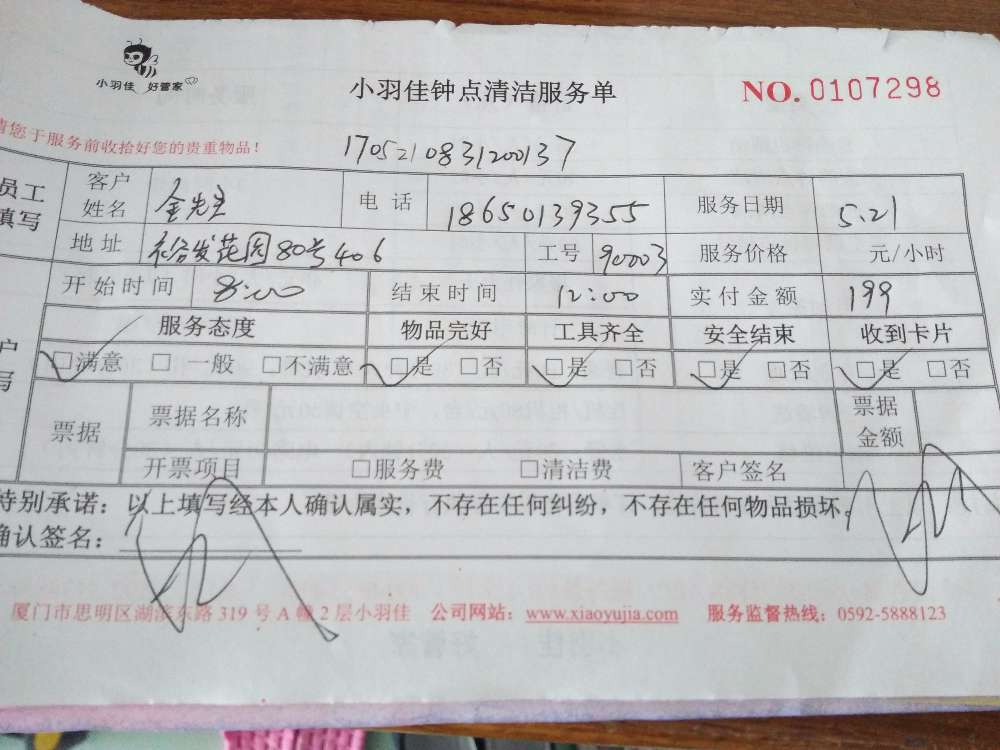 小羽佳 好管家
小羽佳钟点清洁服务单
NO. 0107298
请您于服务前收拾好您的贵重物品！
170521083120037
员工填写 客户姓名 金先生 电话 18650139355 服务日期 5.21
地址 裕发花园80号406 工号 90003 服务价格 元/小时
开始时间 8:00 结束时间 12:00 实付金额 199
服务态度 物品完好 工具齐全 安全结束 收到卡片
□满意 □一般 □不满意 □是 □否 □是 □否 □是 □否 □是 □否
户写
票据 票据名称 票据金额
开票项目 □服务费 □清洁费 客户签名
特别承诺：以上填写经本人确认属实，不存在任何纠纷，不存在任何物品损坏。
确认签名：
厦门市思明区湖滨东路 319 号 A 幢 2 层小羽佳 公司网站：www.xiaoyujia.com 服务监督热线：0592-5888123